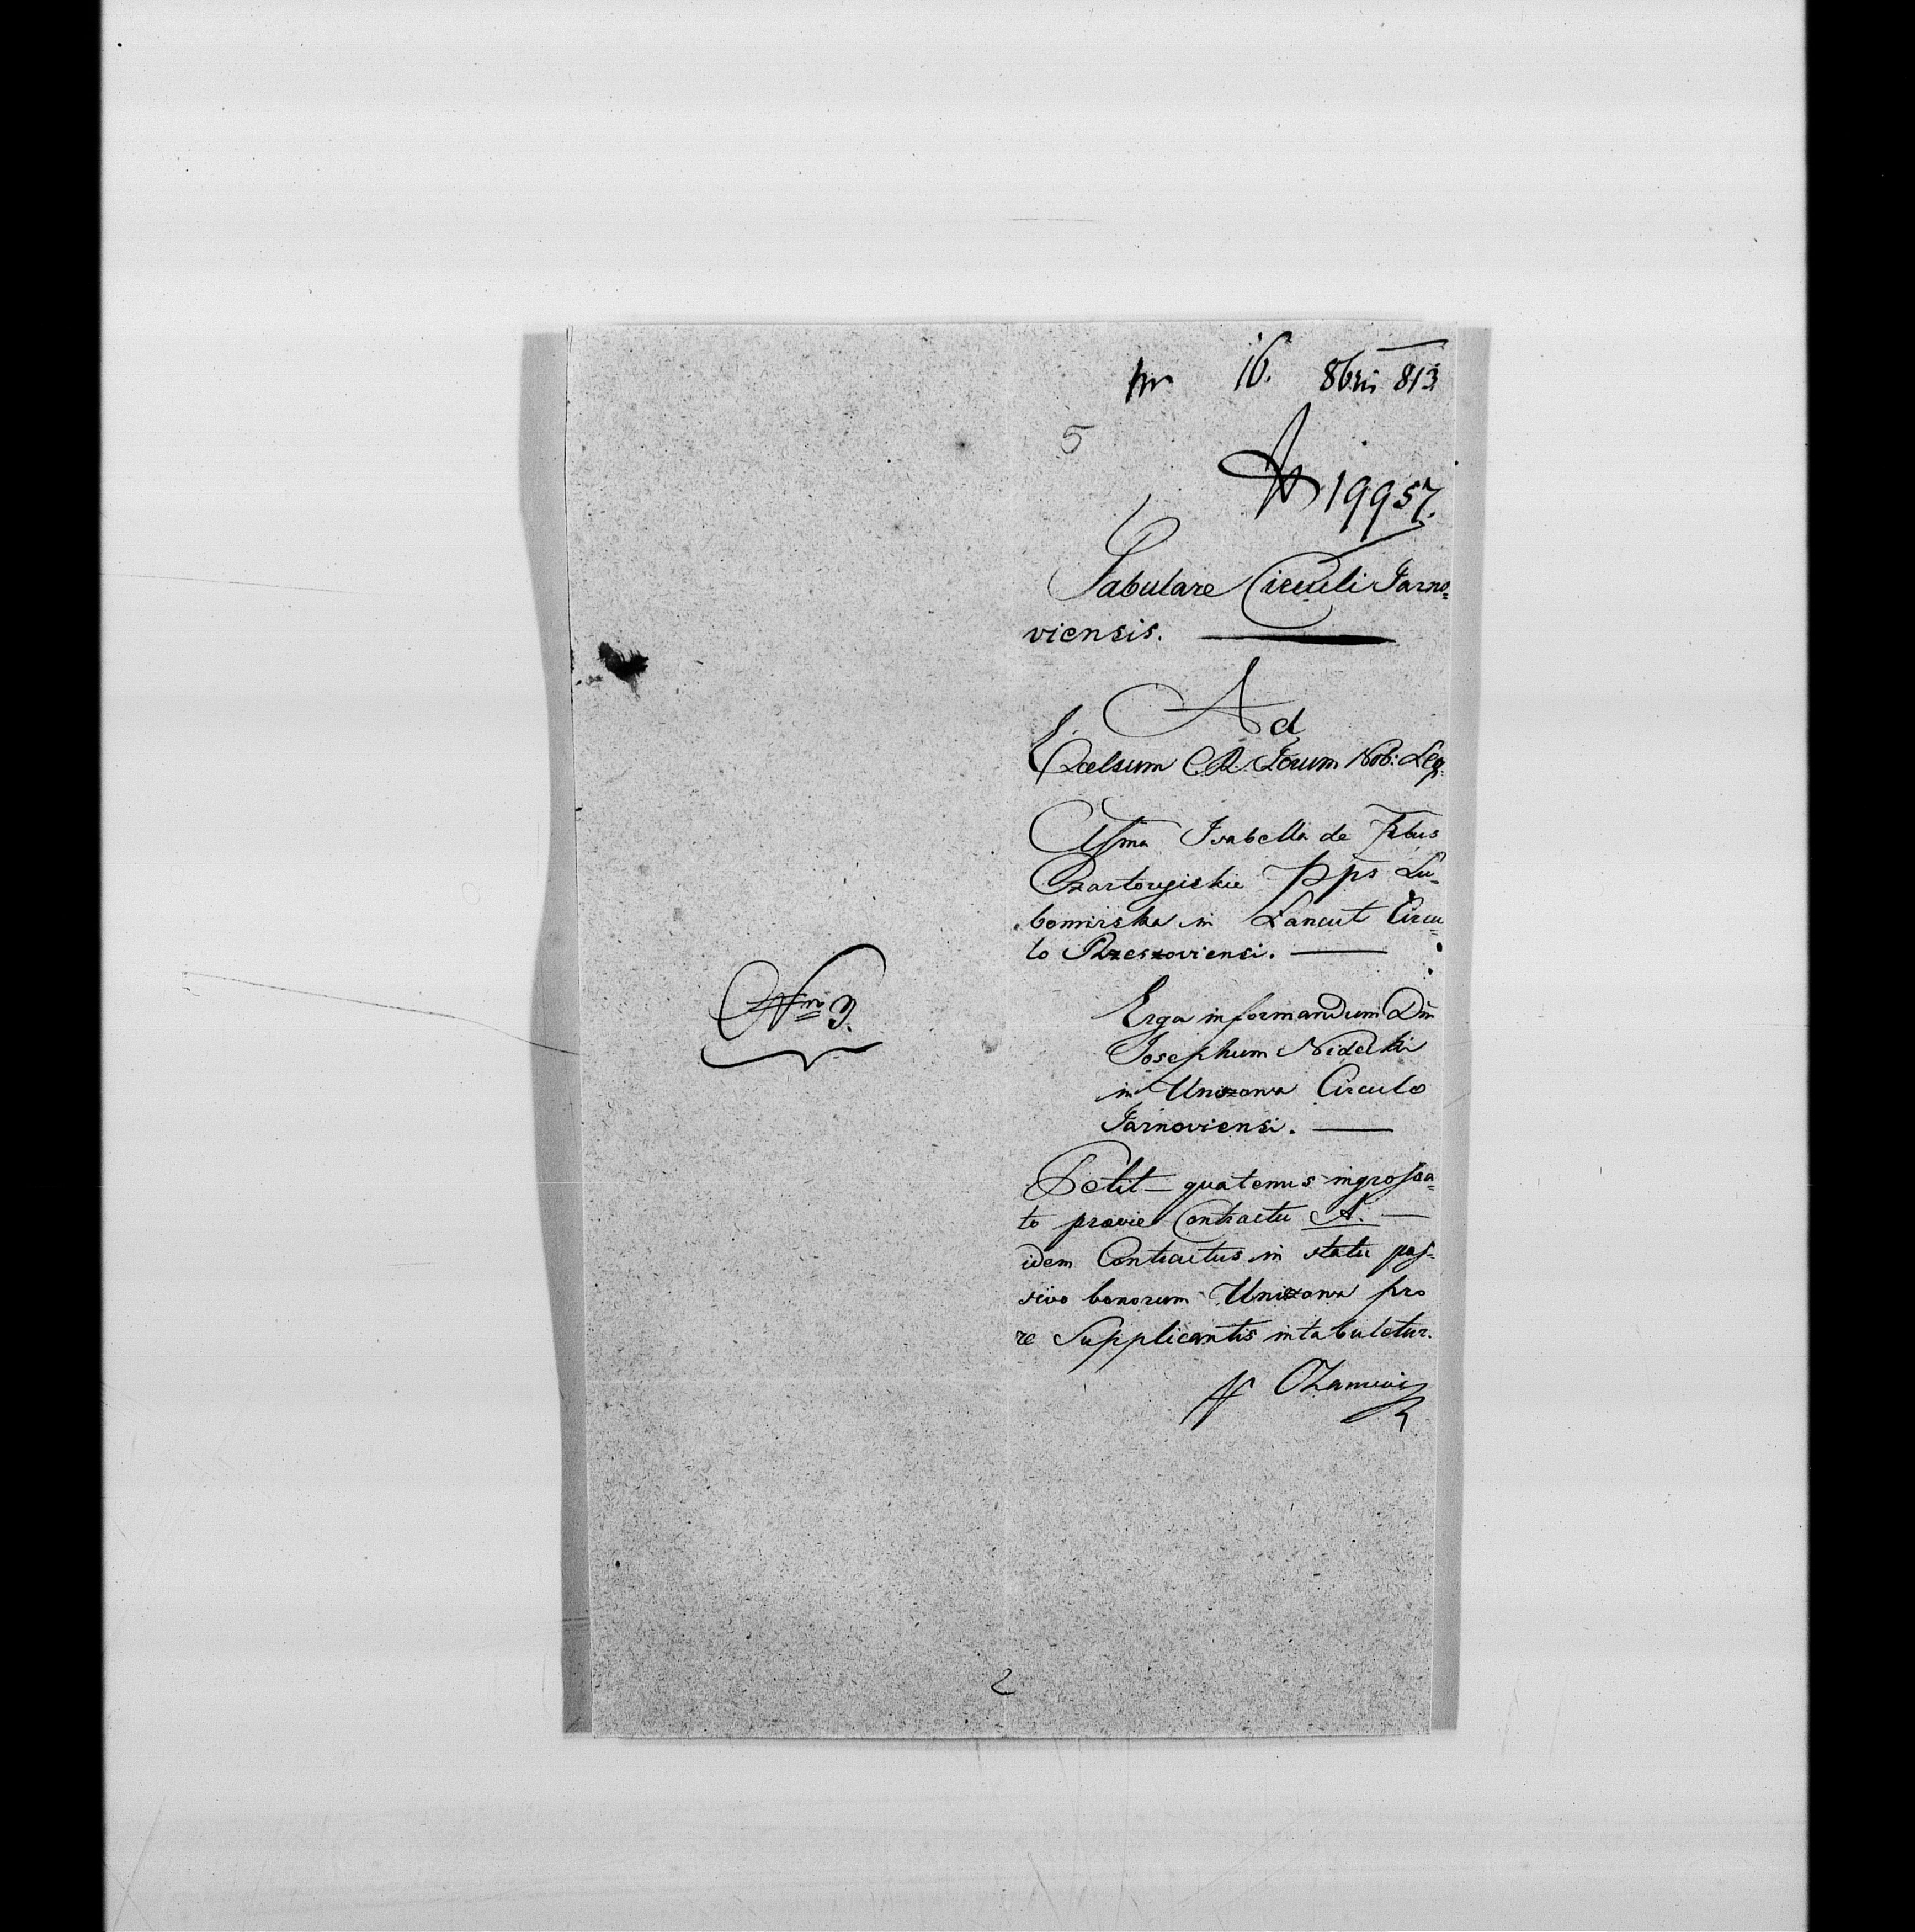 pr 16. 8bris 813
5
19957.
Tabulare Circuli Tarno=
viensis.
Ad
Excelsum C.R. Forum Nob: Leg.
Clsma Isabella de Pbus
Czartoryiskie Pps Lu=
bomirska in Lancut Circu=
lo Rzeszoviensi.
Nro 3.
Erga informandum Dm
Josephum Nidecki
in Uniszowa Circulo
Tarnoviensi.
Petit quatenus ingrossa=
to praevie Contractu A.
idem Contractus in statu pas=
sivo bonorum Uniszowa pro
re Supplicantis intabuletur.
2